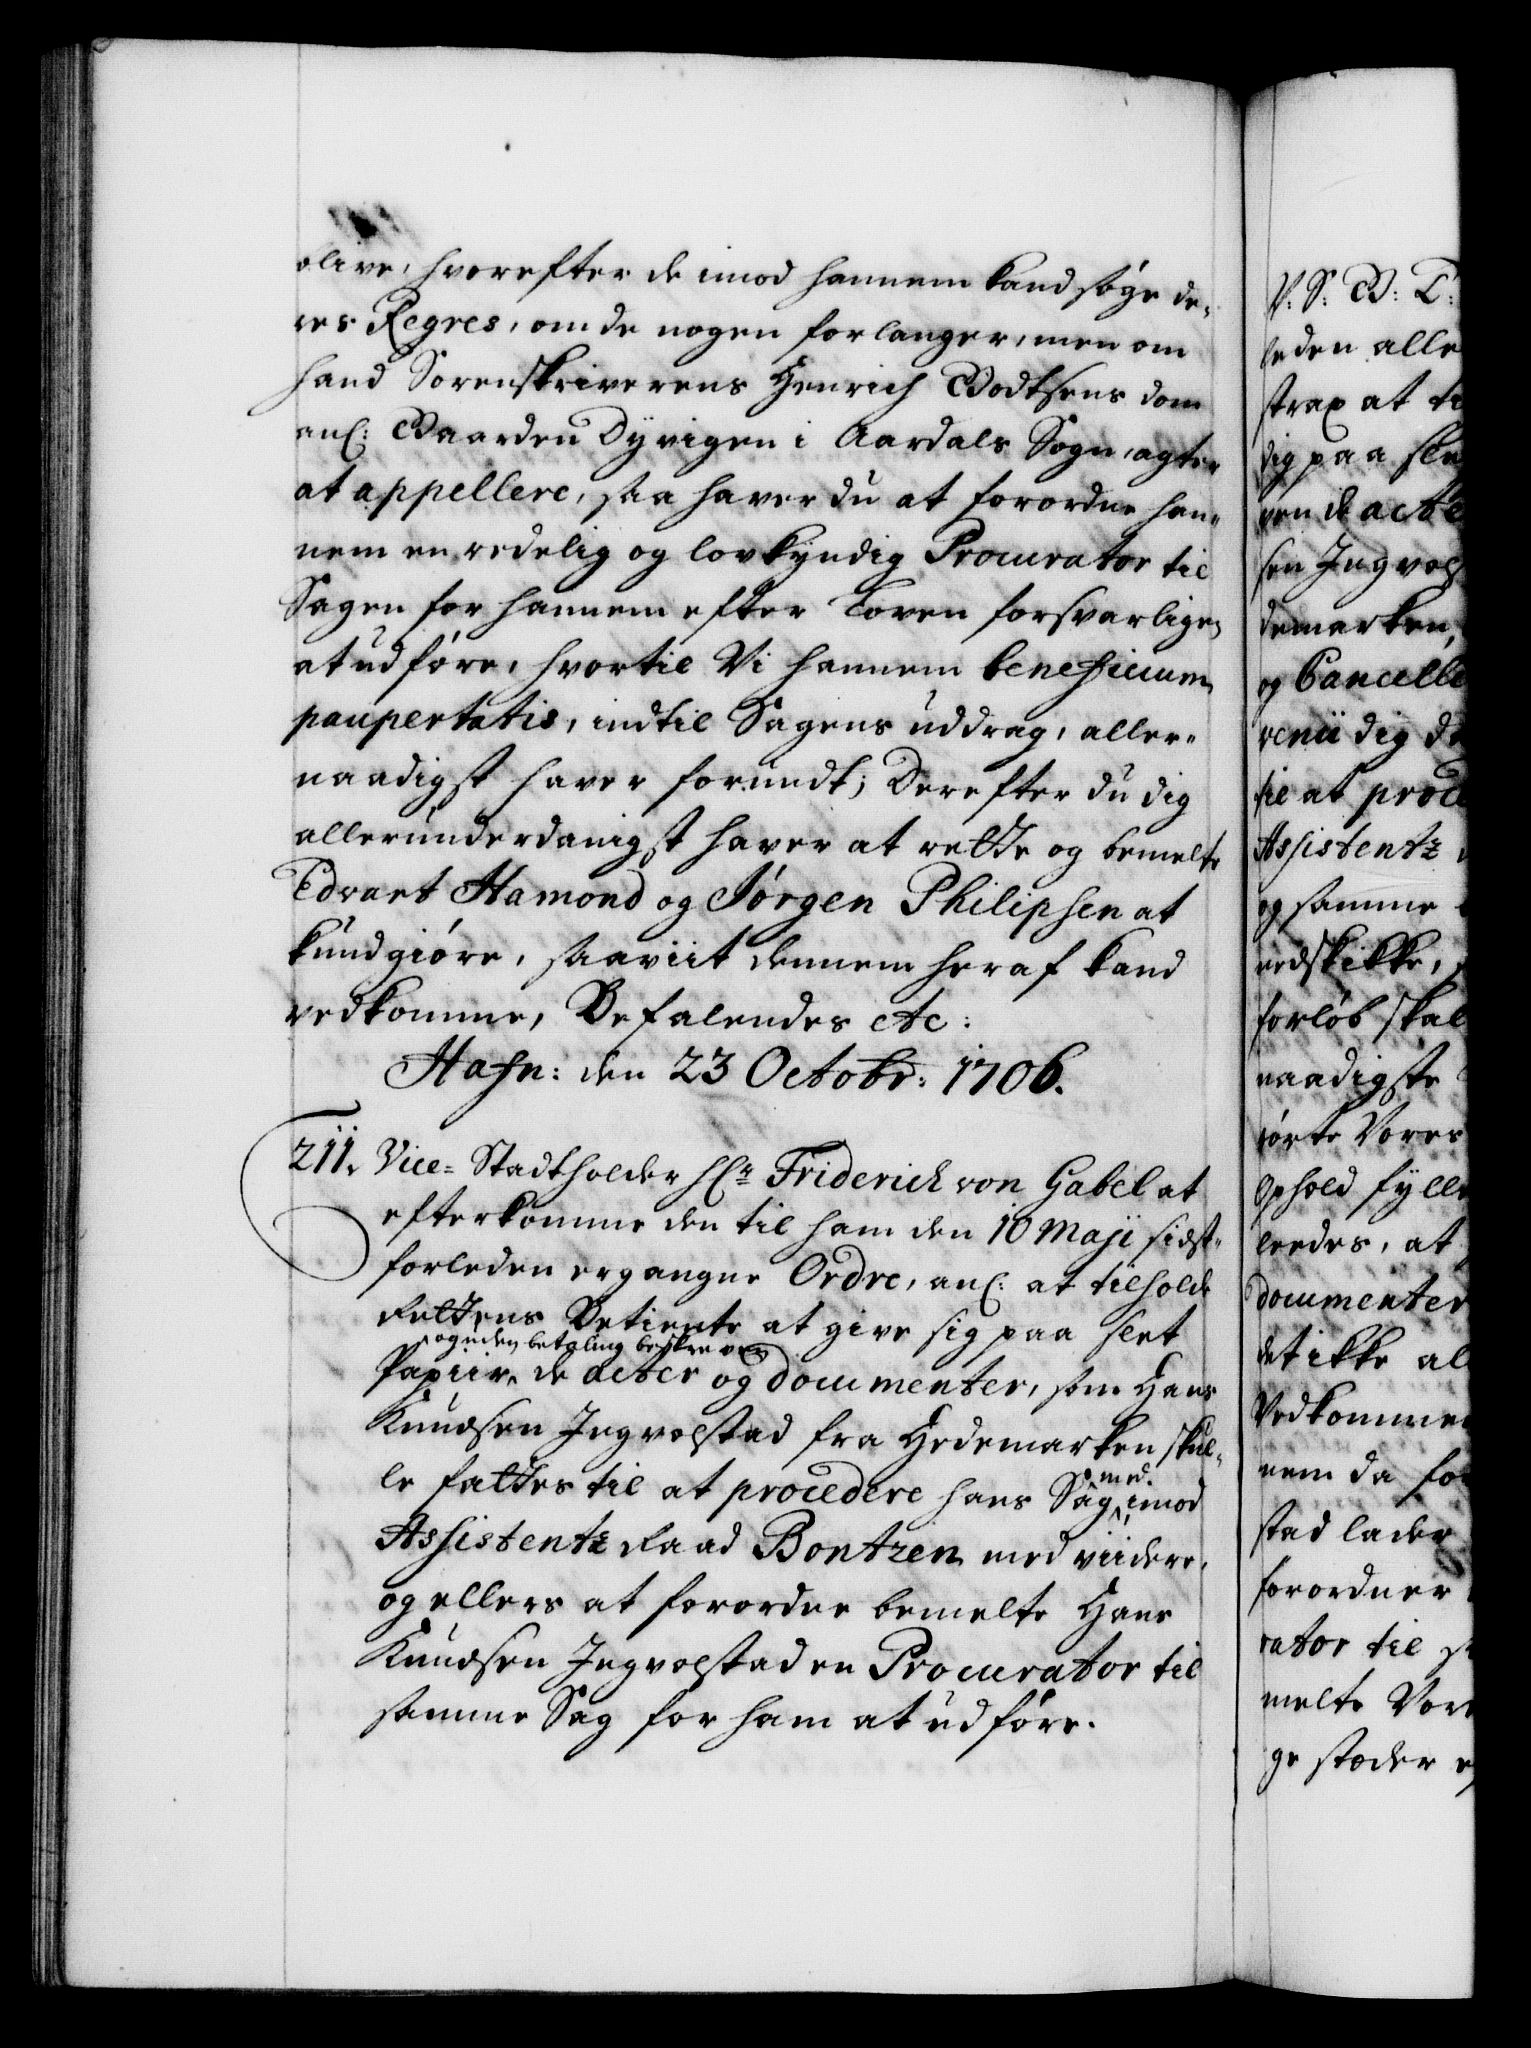 blive, hvorefter de imod hannem kand søge de-
res Regres, om de nogen forlanger, men om
hand Sorenskriverens Henrich Bodtsens dom
anl: Gaarden Dyvigen i Aardals Sogn, agter
at appellere, saa haver du at forordne han-
nem en redelig og lovkyndig Procurator til
Sagen for hannem efter Loven forsvarligen
at udføre, hvortil Vi hannem beneficium
paupertatis, indtil Sagens uddrag, aller-
naadigst haver forundt; Derefter du dig
allerunderdanigst haver at rette og bemelte
Edvart Hamond og Jørgen Philipsen at
kundgiøre, saaviit dennem heraf kand
vedkomme, Befalendes etc:
Hafn: den 23 Octobr: 1706.
211. Vice-Stadtholder Hr Friderich von Gabel at
efterkomme den til ham den 10 Maji sidst-
forleden ergangne Ordre, anl: at tilholde
Rettens Betiente at give sig paa slet
og uden betaling beskreven
Papiir, de acter og documenter, som Hans
Knudsen Ingvolstad fra Hedemarken skul-
le fattes til at procedere hans Sag med imod
Assistentz Raad Bontzen med viidere,
og ellers at forordne bemelte Hans
Knudsen Ingvolstad en Procurator til
samme Sag for ham at udføre.
V: S: G: T:
leden alle
strax at ti
dig paa sle
ven de acte
sen Ingvol
demarken,
og Cancelle
renii dig de
til at proce
Assistentz
og samme
nedskikke,
forløb skal
naadigste
rørte Vores
Ophold fylle
leedes, at
documenter
det ikke al
Vedkomme
nem da fo
stad lader
forordner
rator til s
melte Vor
ge stæder